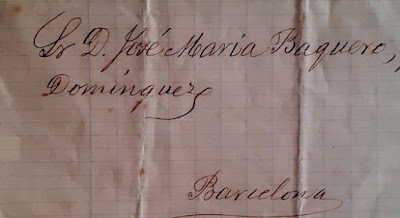 Sr D. José Maria Baquero,
Dominguez
Barcelona